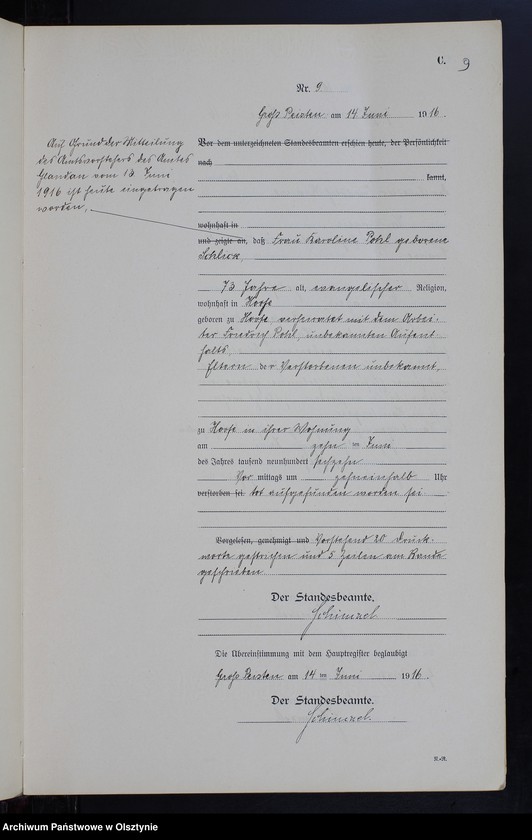 C. 9
Nr. 9
Groß Peisten am 14 Juni 1916.
Auf Grund der Mitteilung
des Amtsvorstehers des Amtes
Glandau vom 13 Juni
1916 ist heute eingetragen
worden,
Vor dem unterzeichneten Standesbeamten erschien heute, der Persönlichkeit
nach
kannt,
wohnhaft in
und zeigte an, daß Frau Karoline Pohl geborene
Schlick,
73 Jahre alt, evangelischer Religion,
wohnhaft in Hoofe
geboren zu Hoofe, verheiratet mit dem Arbei-
ter Friedrich Pohl, unbekannten Aufent
halts,
Eltern der Verstorbenen unbekannt,
zu Hoofe in ihrer Wohnung
am zehn ten Juni
des Jahres tausend neunhundert sechzehn
Vor mittags um zehneinhalb Uhr
verstorben sei. tot aufgefunden worden sei.
Vorgelesen, genehmigt und Vorstehend 20 Druck-
worte gestrichen und 5 Zeilen am Rande
geschrieben
Der Standesbeamte.
Schimzel
Die Übereinstimmung mit dem Hauptregister beglaubigt
Groß Peisten am 14 ten Juni 1916.
Der Standesbeamte.
Schimzel.
Archiwum Państwowe w Olsztynie